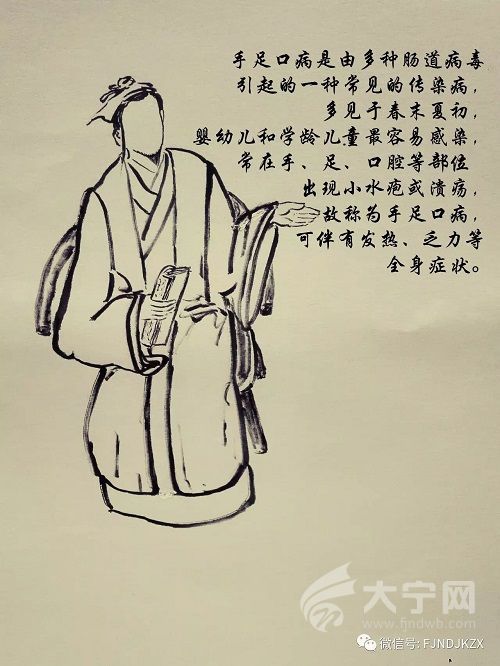 手足口病是由多种肠道病毒
引起的一种常见的传染病，
多见于春末夏初，
婴幼儿和学龄儿童最容易感染，
常在手、足、口腔等部位
出现小水疱或溃疡，
故称为手足口病，
可伴有发热、乏力等
全身症状。
大宁网
www.fjndwb.com
微信号: FJNDJKZX